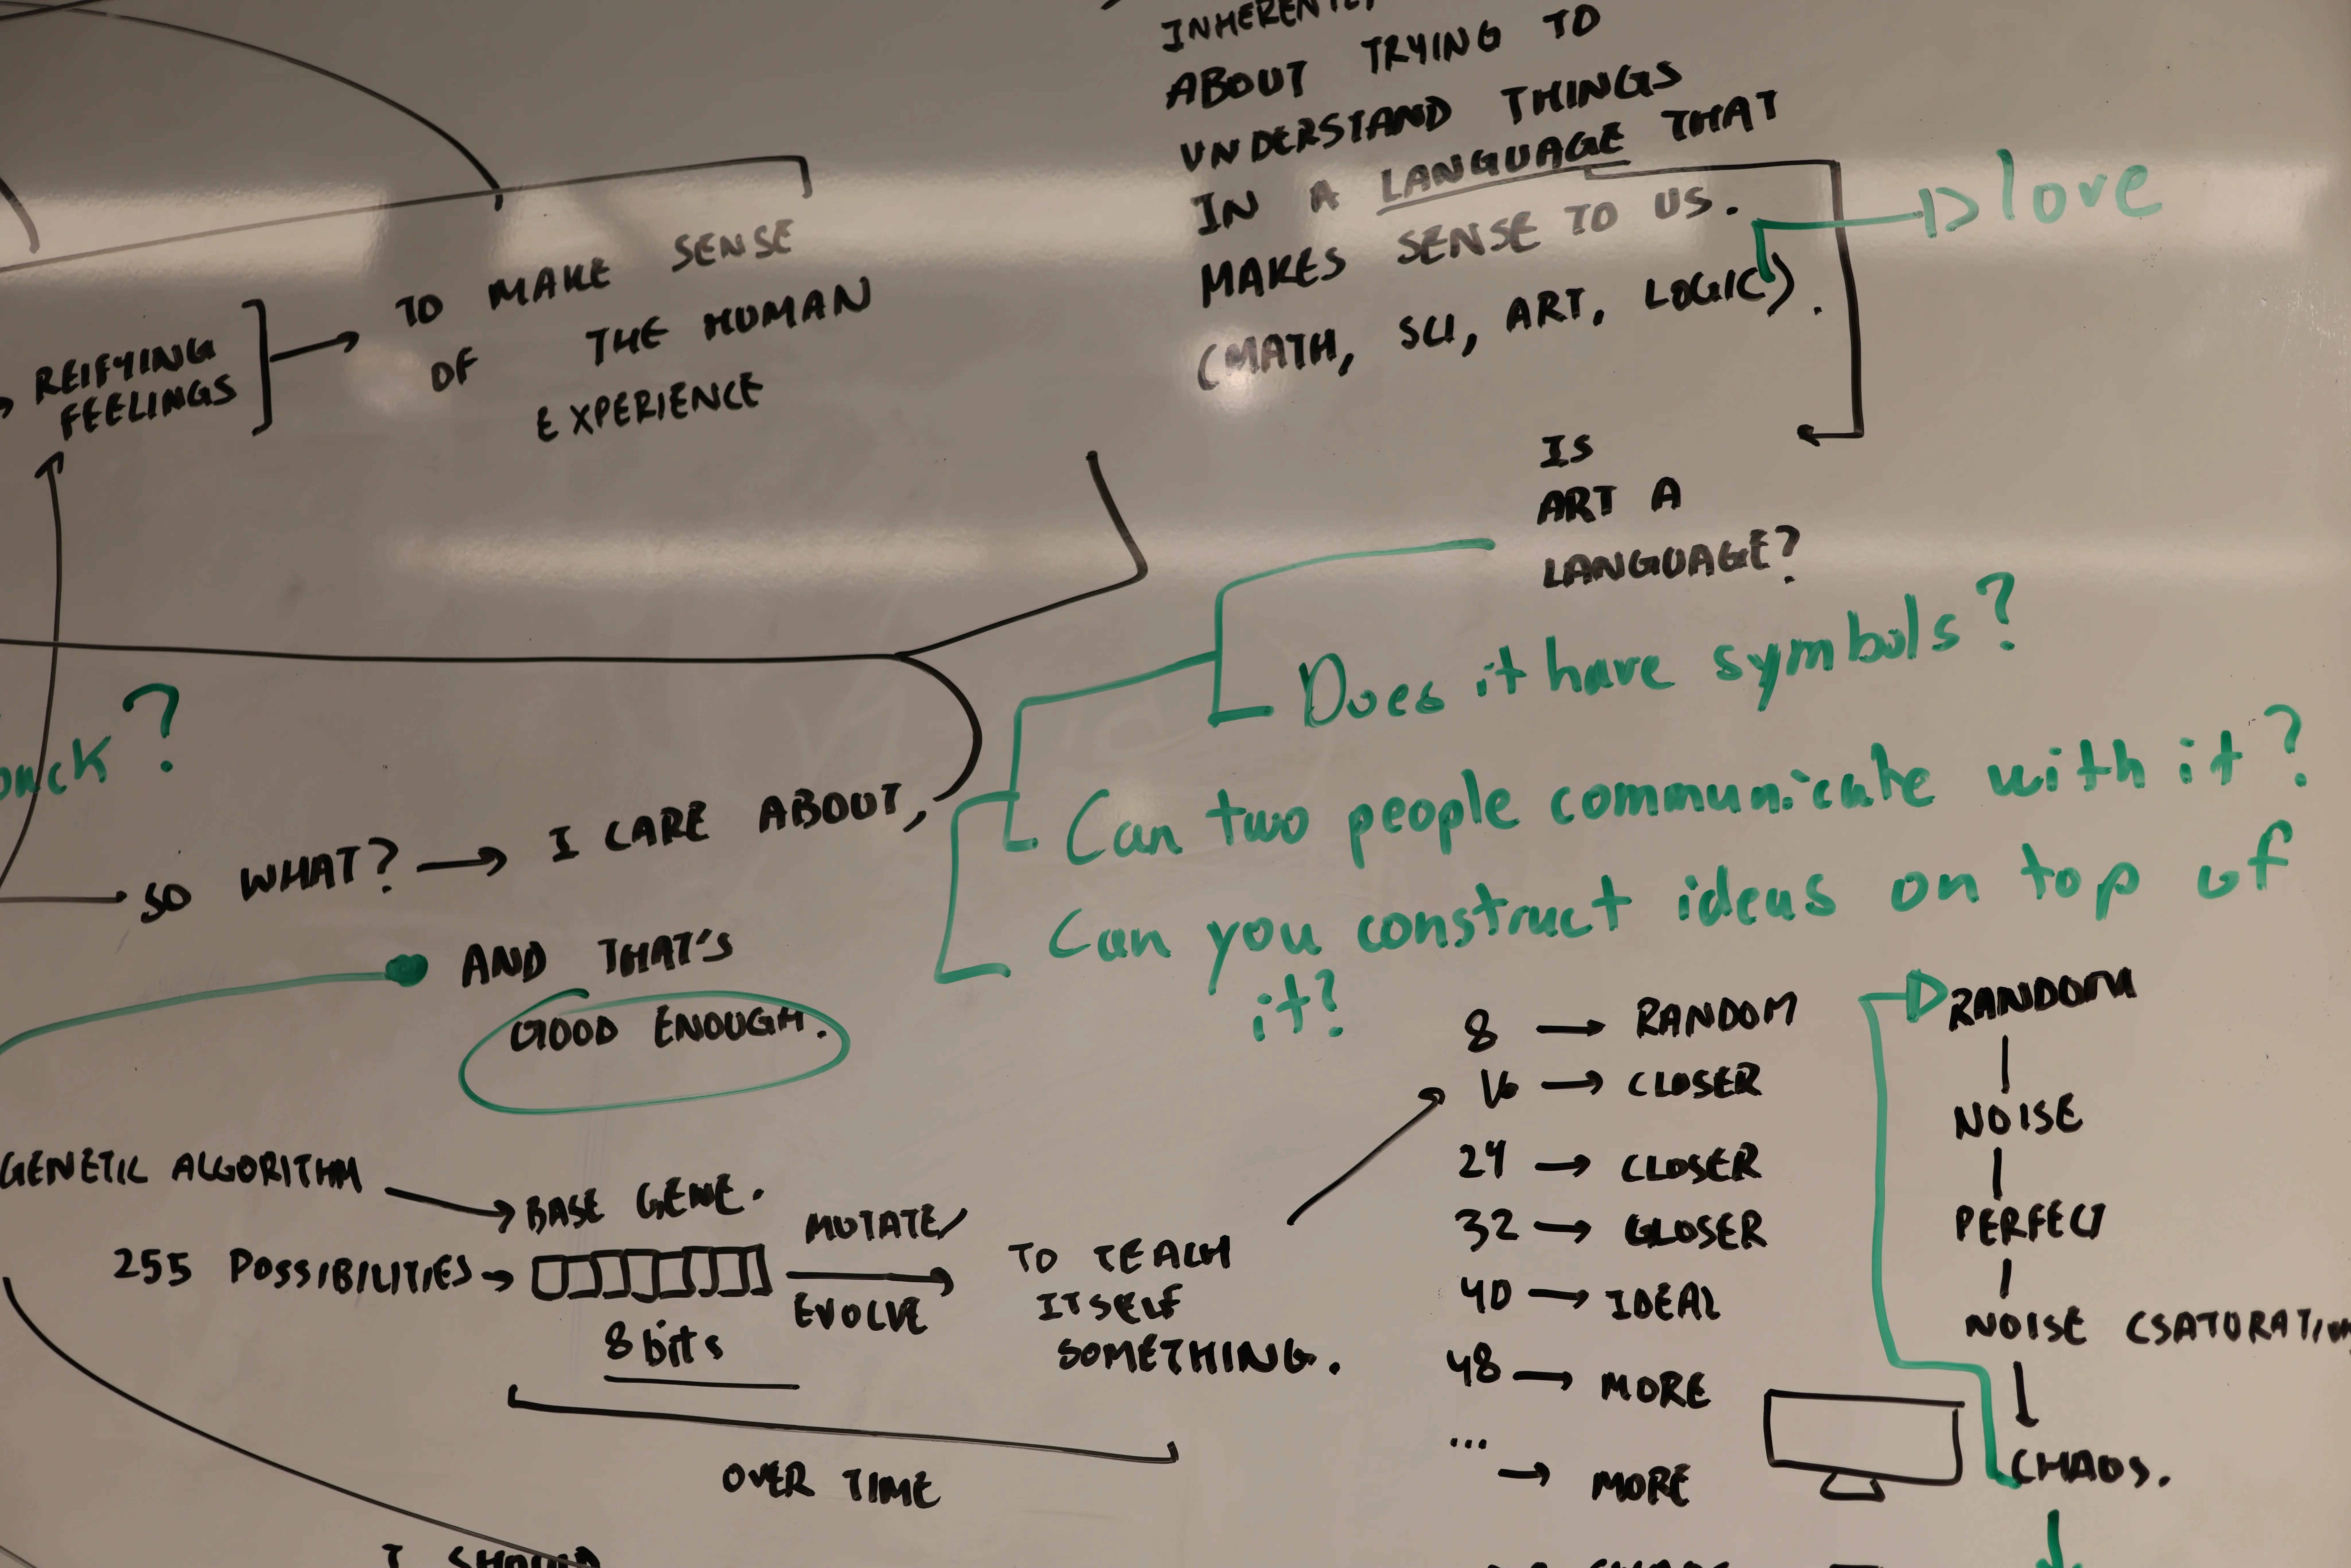 ABOUT TRYING TO
UNDERSTAND THINGS
IN A LANGUAGE THAT
MAKES SENSE TO US.
(MATH, SCI, ART, LOGIC).
love
REIFYING
FEELINGS
TO MAKE SENSE
OF THE HUMAN
EXPERIENCE
IS
ART A
LANGUAGE?
Does it have symbols?
Can two people communicate with it?
Can you construct ideas on top of
it?
SO WHAT? I CARE ABOUT,
AND THAT'S
GOOD ENOUGH.
GENETIC ALGORITHM
BASE GENE.
255 POSSIBILITIES
8 bits
MUTATE/
EVOLVE
TO TEACH
ITSELF
SOMETHING.
OVER TIME
8 → RANDOM
16 → CLOSER
24 → CLOSER
32 → CLOSER
40 → IDEAL
48 → MORE
... → MORE
RANDOM
NOISE
PERFECT
NOISE (SATURATION
CHAOS.
I SHOULD